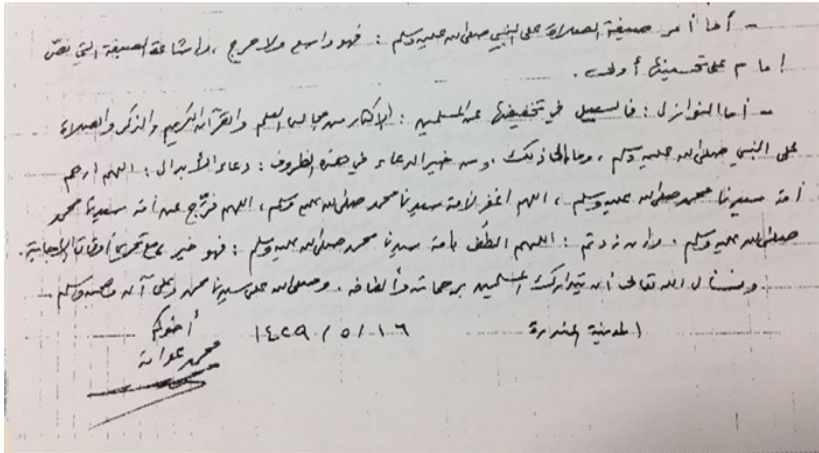 - أما أمر صيغة الصلاة على النبي صلى الله عليه وسلم : فهو واسع ولا حرج ، وإشاعة الصيغة التي نصّ
إمام على تحسينها أولى .
- أما النوازل : فالسبيل في تخفيفها عن المسلمين : الإكثار من مجالس العلم والقرآن الكريم والذكر والصلاة
على النبي صلى الله عليه وسلم ، وما إلى ذلك . ومن خير الدعاء في هذه الظروف : دعاء الأبدال : اللهم ارحم
أمة سيدنا محمد صلى الله عليه وسلم ، اللهم اغفر لأمة سيدنا محمد صلى الله عليه وسلم ، اللهم فرّج عن أمة سيدنا محمد
صلى الله عليه وسلم . وإن زدتم : اللهم الطف بأمة سيدنا محمد صلى الله عليه وسلم : فهو خير مع تحري أوقات الإجابة .
ونسأل الله تعالى أن يتدارك المسلمين برحماته وألطافه . وصلى الله على سيدنا محمد وعلى آله وصحبه وسلم .
المدينة المنورة ١٤٢٩/٥/١٦ أخوكم
محمد عوامة